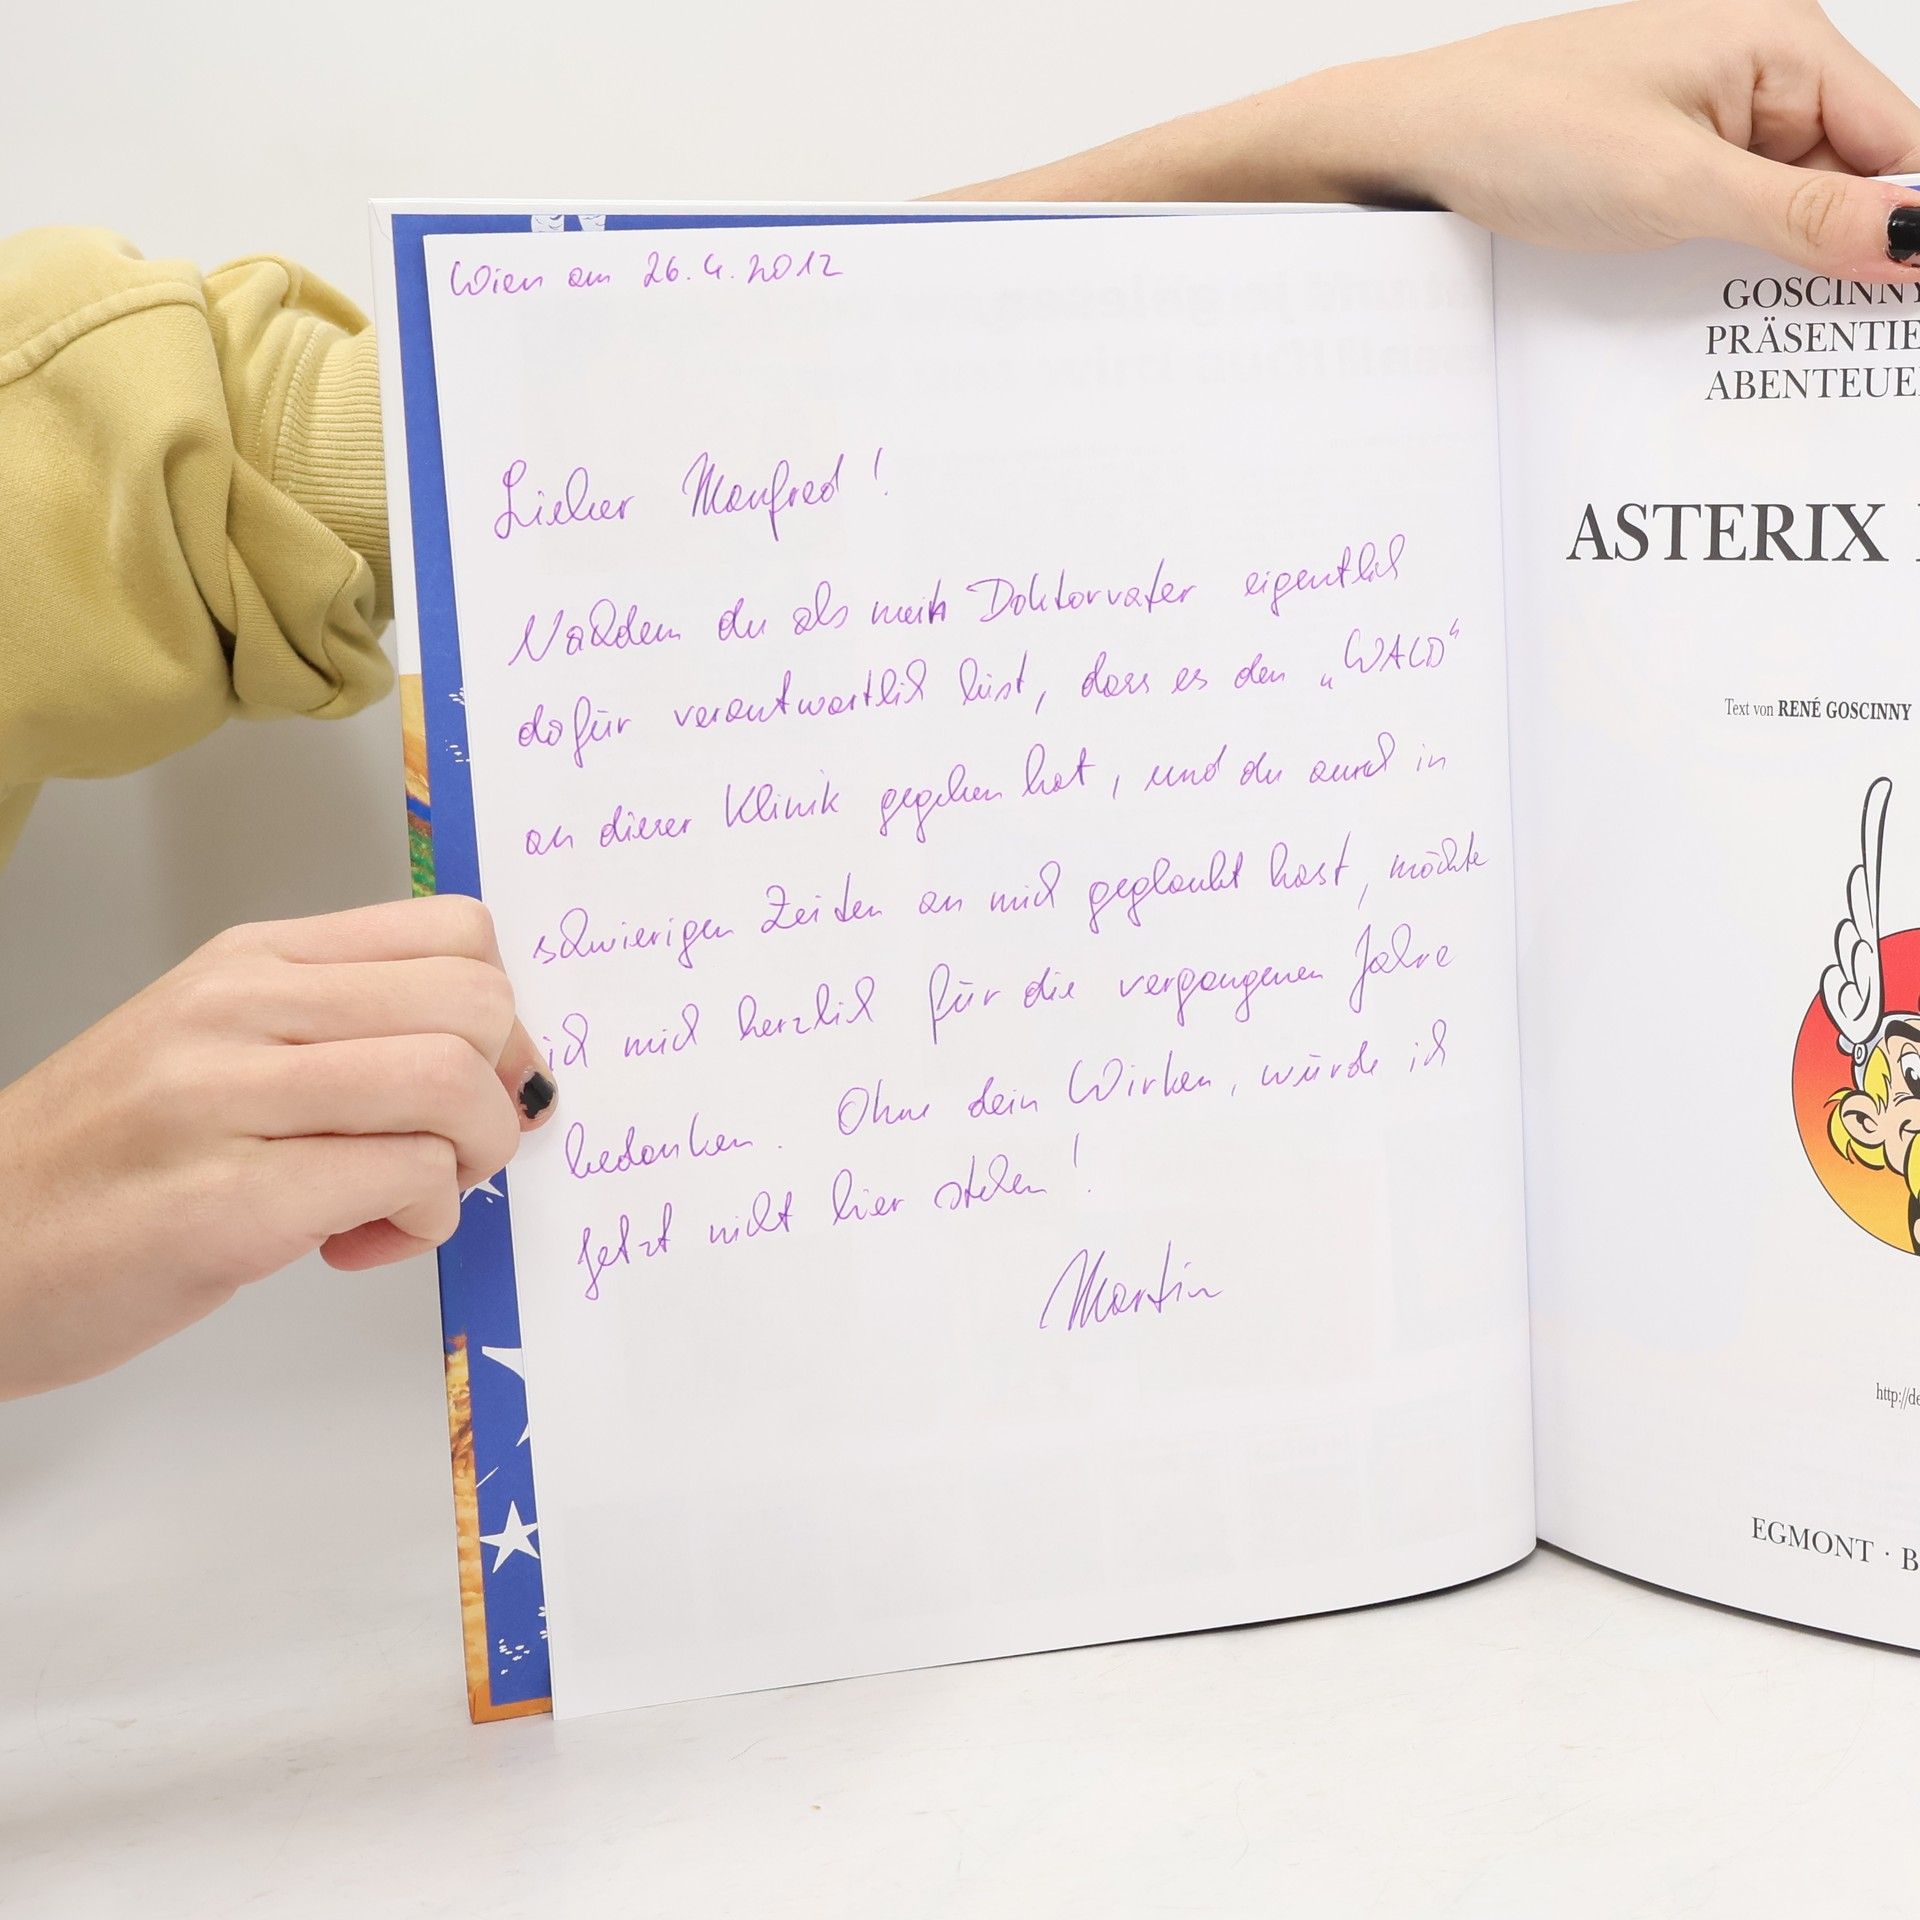 Wien am 26.4.2012
Lieber Manfred!
Nachdem du als mein Doktorvater eigentlich
dafür verantwortlich bist, dass es den „WALD“
an dieser Klinik gegeben hat, und du auch in
schwierigen Zeiten an mich geglaubt hast, möchte
ich mich herzlich für die vergangenen Jahre
bedanken. Ohne dein Wirken, würde ich
jetzt nicht hier stehen!
Martin
GOSCINNY
PRÄSENTIE
ABENTEUE
ASTERIX
Text von RENÉ GOSCINNY
http://de
EGMONT · B